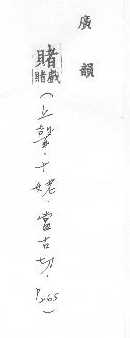 廣韻
賭戲賭(上聲.十姥.當古切.P265)